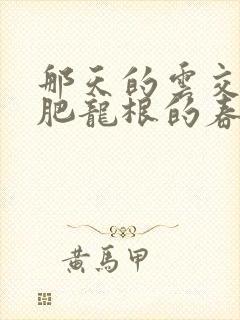 那天的雲交
肥龍根的春
黃馬甲